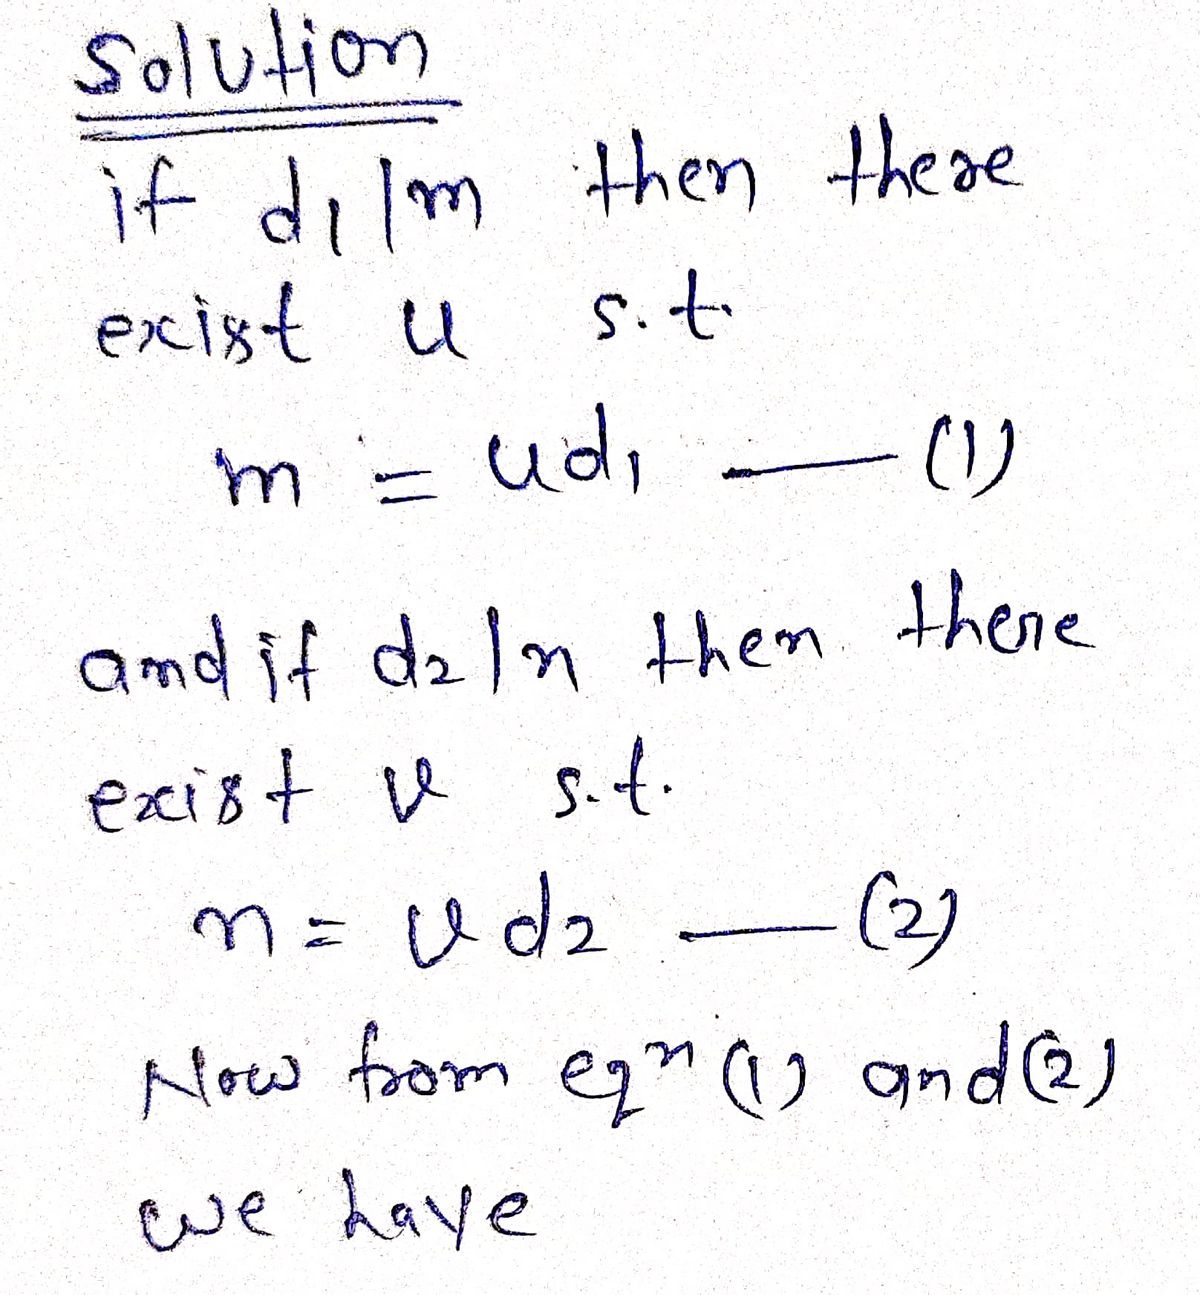 Solution
if d₁ | m then there
exist u s.t.
m = ud₁ — (1)
and if d₂ | n then there
exist v s.t.
n = vd₂ — (2)
Now from eqⁿ (1) and (2)
we have